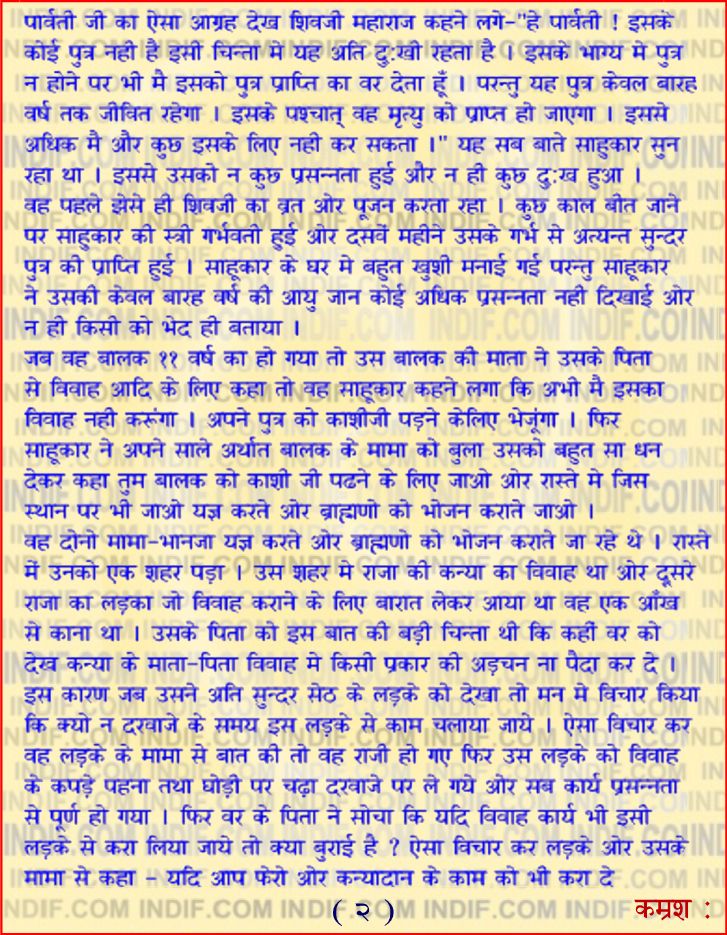 पार्वती जी का ऐसा आग्रह देख शिवजी महाराज कहने लगे-"हे पार्वती ! इसके
कोई पुत्र नही है इसी चिन्ता मे यह अति दु:खी रहता है । इसके भाग्य मे पुत्र
न होने पर भी मै इसको पुत्र प्राप्ति का वर देता हूँ । परन्तु यह पुत्र केवल बारह
वर्ष तक जीवित रहेगा । इसके पश्चात् वह मृत्यु को प्राप्त हो जाएगा । इससे
अधिक मै और कुछ इसके लिए नही कर सकता ।" यह सब बाते साहुकार सुन
रहा था । इससे उसको न कुछ प्रसन्नता हुई और न ही कुछ दु:ख हुआ ।
वह पहले झेसे ही शिवजी का व्रत ओर पूजन करता रहा । कुछ काल बीत जाने
पर साहुकार की स्त्री गर्भवती हुई ओर दसवे महीने उसके गर्भ से अत्यन्त सुन्दर
पुत्र की प्राप्ति हुई । साहूकार के घर मे बहुत खुशी मनाई गई परन्तु साहूकार
ने उसकी केवल बारह वर्ष की आयु जान कोई अधिक प्रसन्नता नही दिखाई ओर
न ही किसी को भेद ही बताया ।
जब वह बालक ११ वर्ष का हो गया तो उस बालक की माता ने उसके पिता
से विवाह आदि के लिए कहा तो वह साहूकार कहने लगा कि अभी मै इसका
विवाह नही करूंगा । अपने पुत्र को काशीजी पड़ने केलिए भेजूंगा । फिर
साहूकार ने अपने साले अर्थात बालक के मामा को बुला उसको बहुत सा धन
देकर कहा तुम बालक को काशी जी पढने के लिए जाओ ओर रास्ते मे जिस
स्थान पर भी जाओ यज्ञ करते ओर ब्राह्मणो को भोजन कराते जाओ ।
वह दोनो मामा-भानजा यज्ञ करते ओर ब्राह्मणो को भोजन कराते जा रहे थे । रास्ते
में उनको एक शहर पड़ा । उस शहर मे राजा की कन्या का विवाह था ओर दूसरे
राजा का लड़का जो विवाह कराने के लिए बारात लेकर आया था वह एक आँख
से काना था । उसके पिता को इस बात की बड़ी चिन्ता थी कि कहीं वर को
देख कन्या के माता-पिता विवाह मे किसी प्रकार की अड़चन ना पैदा कर दे ।
इस कारण जब उसने अति सुन्दर सेठ के लड़के को देखा तो मन मे विचार किया
कि क्यो न दरवाजे के समय इस लड़के से काम चलाया जाये । ऐसा विचार कर
वह लड़के के मामा से बात की तो वह राजी हो गए फिर उस लड़के को विवाह
के कपड़े पहना तथा घोड़ी पर चढ़ा दरवाजे पर ले गये ओर सब कार्य प्रसन्नता
से पूर्ण हो गया । फिर वर के पिता ने सोचा कि यदि विवाह कार्य भी इसी
लड़के से करा लिया जाये तो क्या बुराई है ? ऐसा विचार कर लड़के ओर उसके
मामा से कहा - यदि आप फेरो ओर कन्यादान के काम को भी करा दे
( २ )
कम्रश :